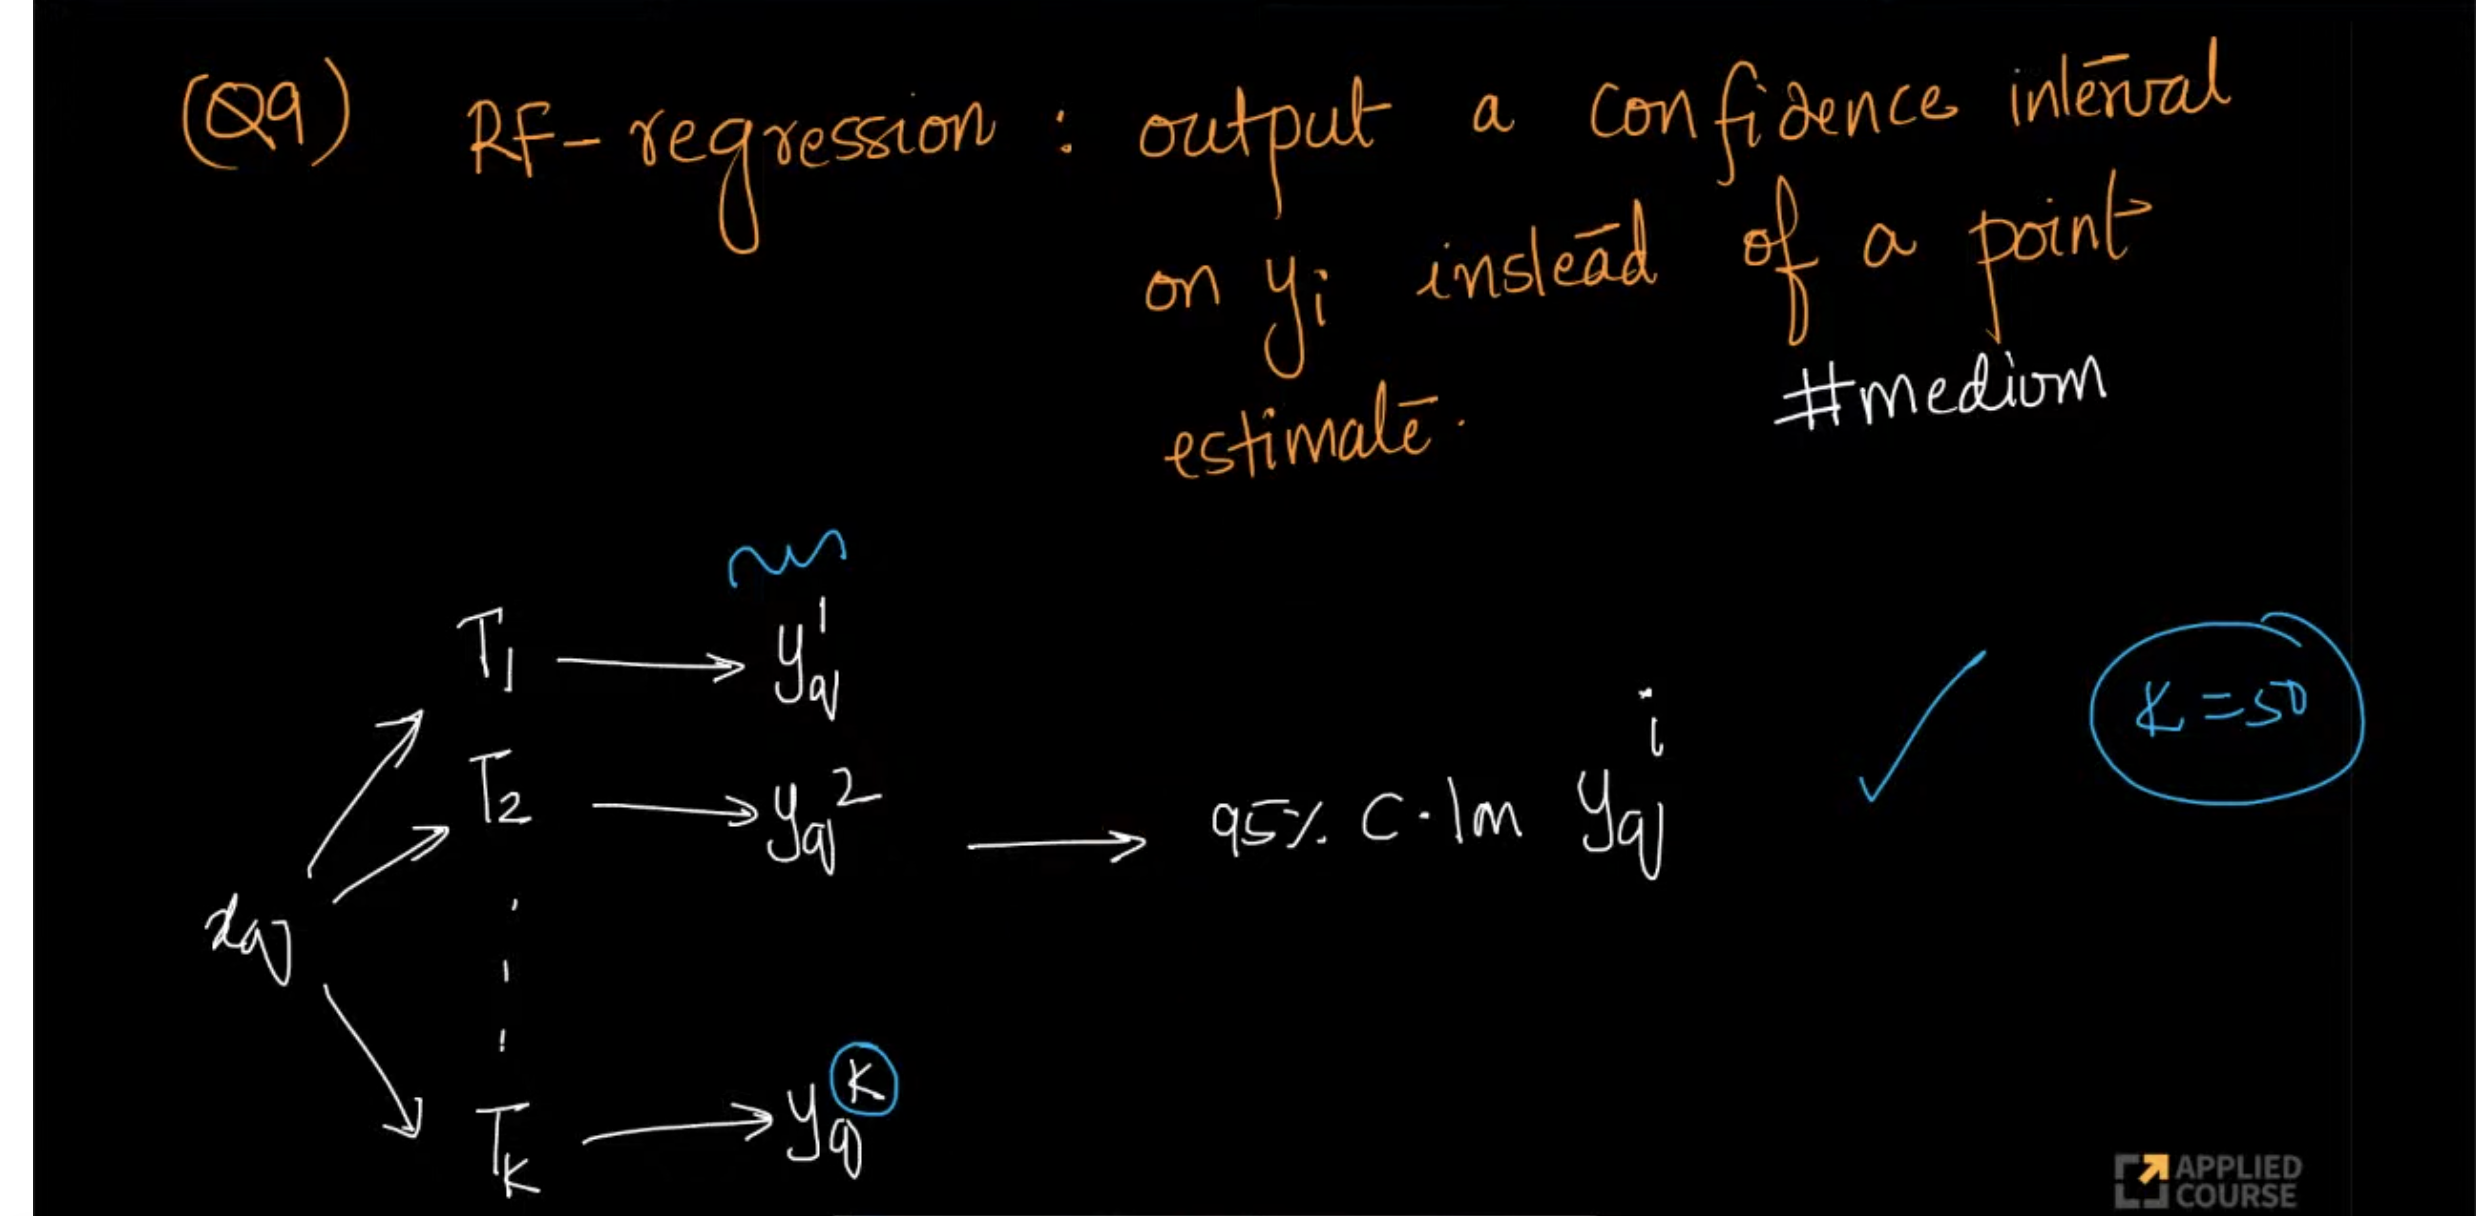 (Q9) RF-regression : output a confidence interval
on yi instead of a point
estimate.
#medium
T1 → yq^1
T2 → yq^2 → 95% C.I on yq^i ✓ K=50
xq
Tk → yq^K
APPLIED
COURSE